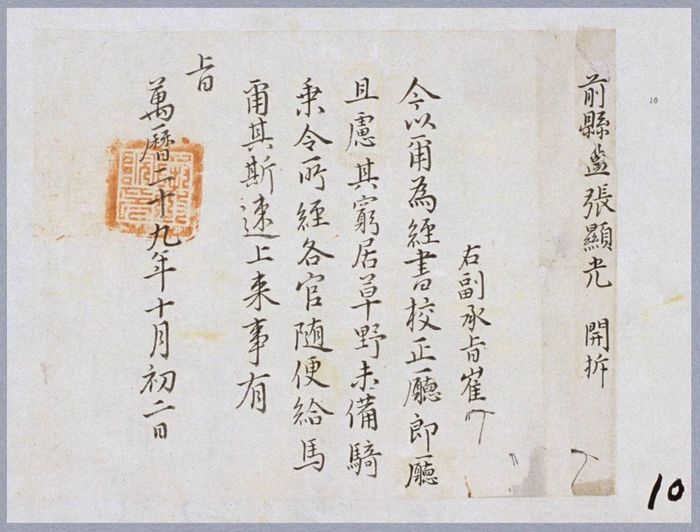 前縣監張顯光 開拆
右副承旨崔
今以爾為經書校正廳郎廳
且慮其窮居草野未備騎
乗令所經各官随便給馬
爾其斯速上来事有
旨
萬曆二十九年十月初二日
10
10